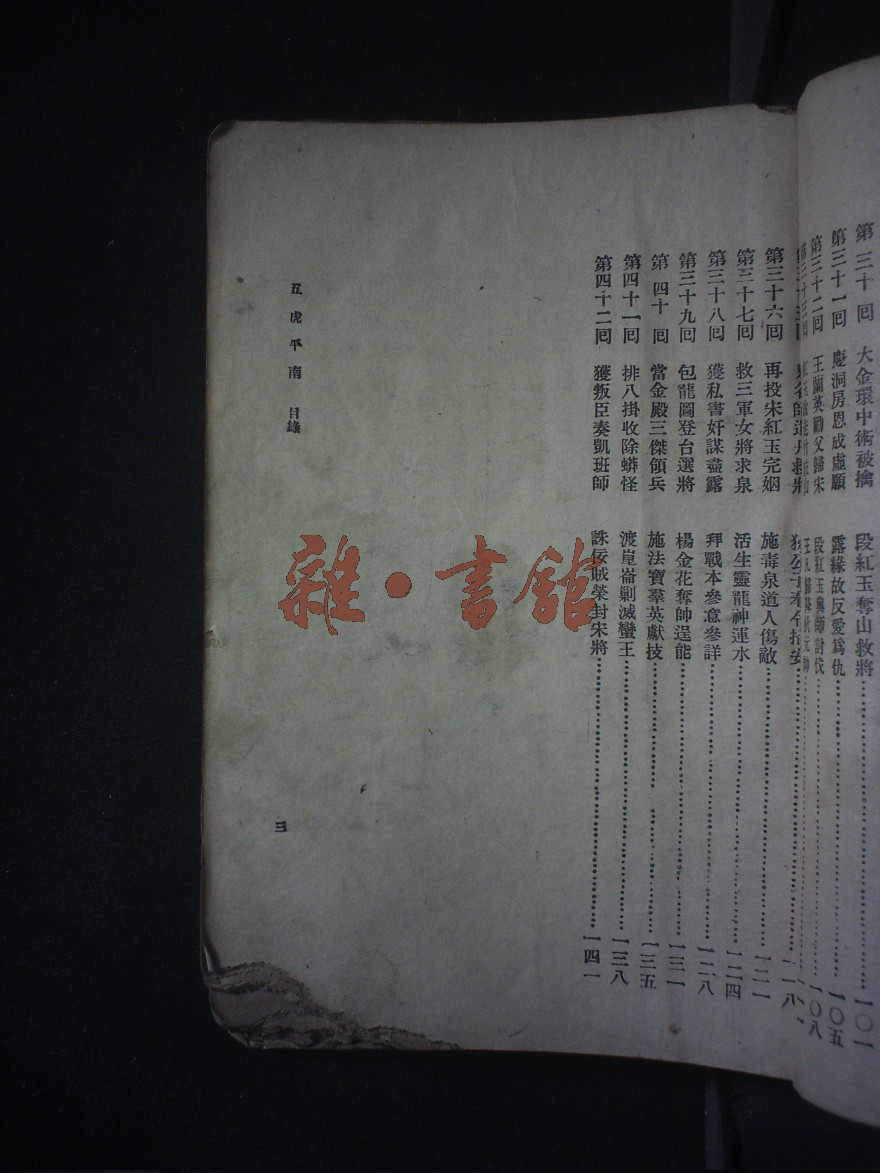 第三十回 大金環中術被擒 段紅玉奪山救將 一〇一
第三十一回 慶洞房恩成虛願 露緣故反愛爲仇 一〇五
第三十二回 王蘭英勸父歸宋 段紅玉興師討伐 一〇八
第三十三回
第三十六回 再投宋紅玉完姻 施毒泉道人傷敵 一二一
第三十七回 救三軍女將求泉 活生靈龍神運水 一二四
第三十八回 獲私書奸謀盡露 拜戰本參意參詳 一二八
第三十九回 包龍圖登台選將 楊金花奪帥逞能 一三一
第四十回 當金殿三傑領兵 施法寶羣英獻技 一三五
第四十一回 排八掛收除蟒怪 渡崑崙剿滅蠻王 一三八
第四十二回 獲叛臣奏凱班師 誅佞賊榮封宋將 一四一
五虎平南 目錄
三
雜·書館